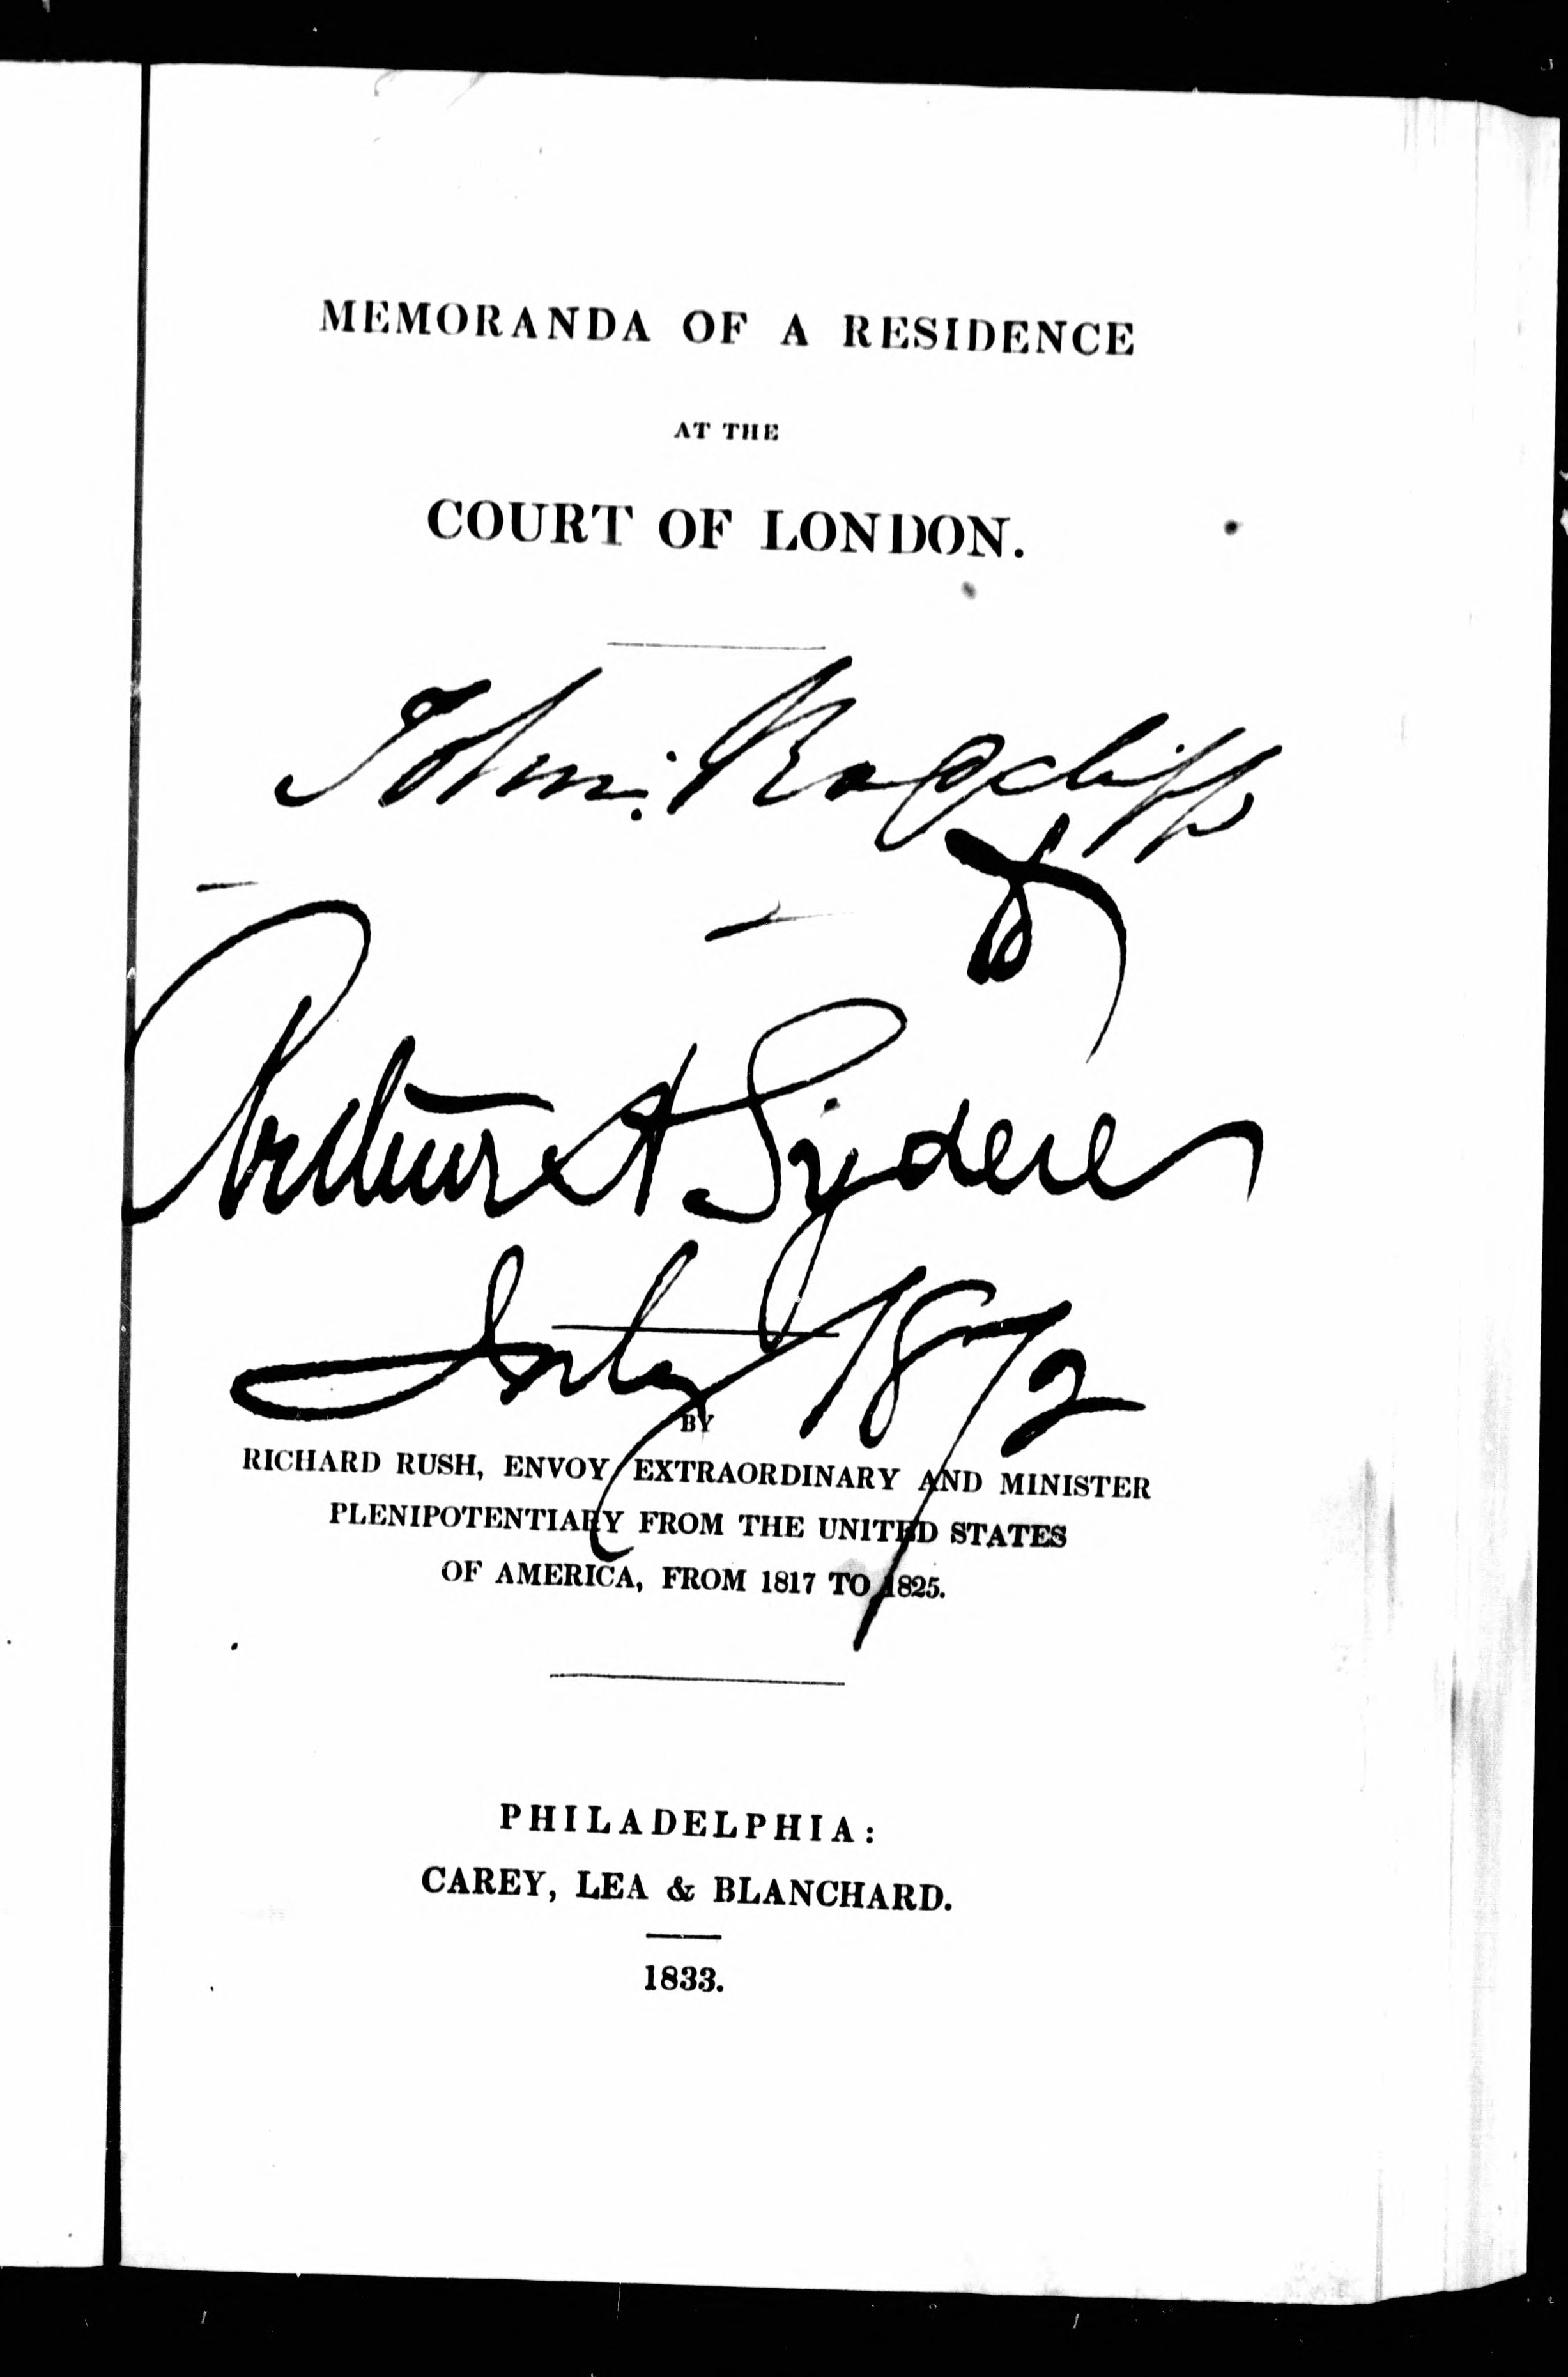 MEMORANDA OF A RESIDENCE
AT THE
COURT OF LONDON.
John
Arthur A Sydere
July 1872
BY
RICHARD RUSH, ENVOY EXTRAORDINARY AND MINISTER
PLENIPOTENTIARY FROM THE UNITED STATES
OF AMERICA, FROM 1817 TO 1825.
PHILADELPHIA:
CAREY, LEA & BLANCHARD.
1833.